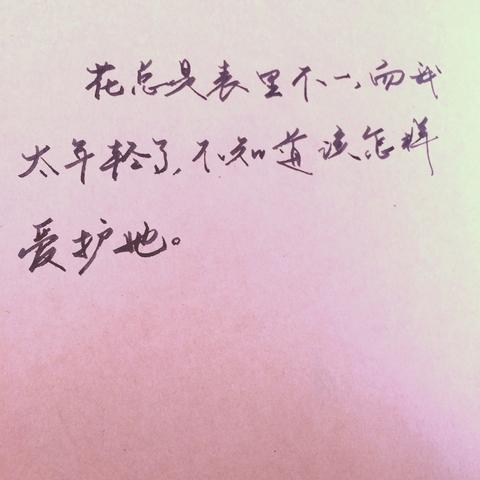 花总是表里不一,而我
太年轻了,不知道该怎样
爱护她。